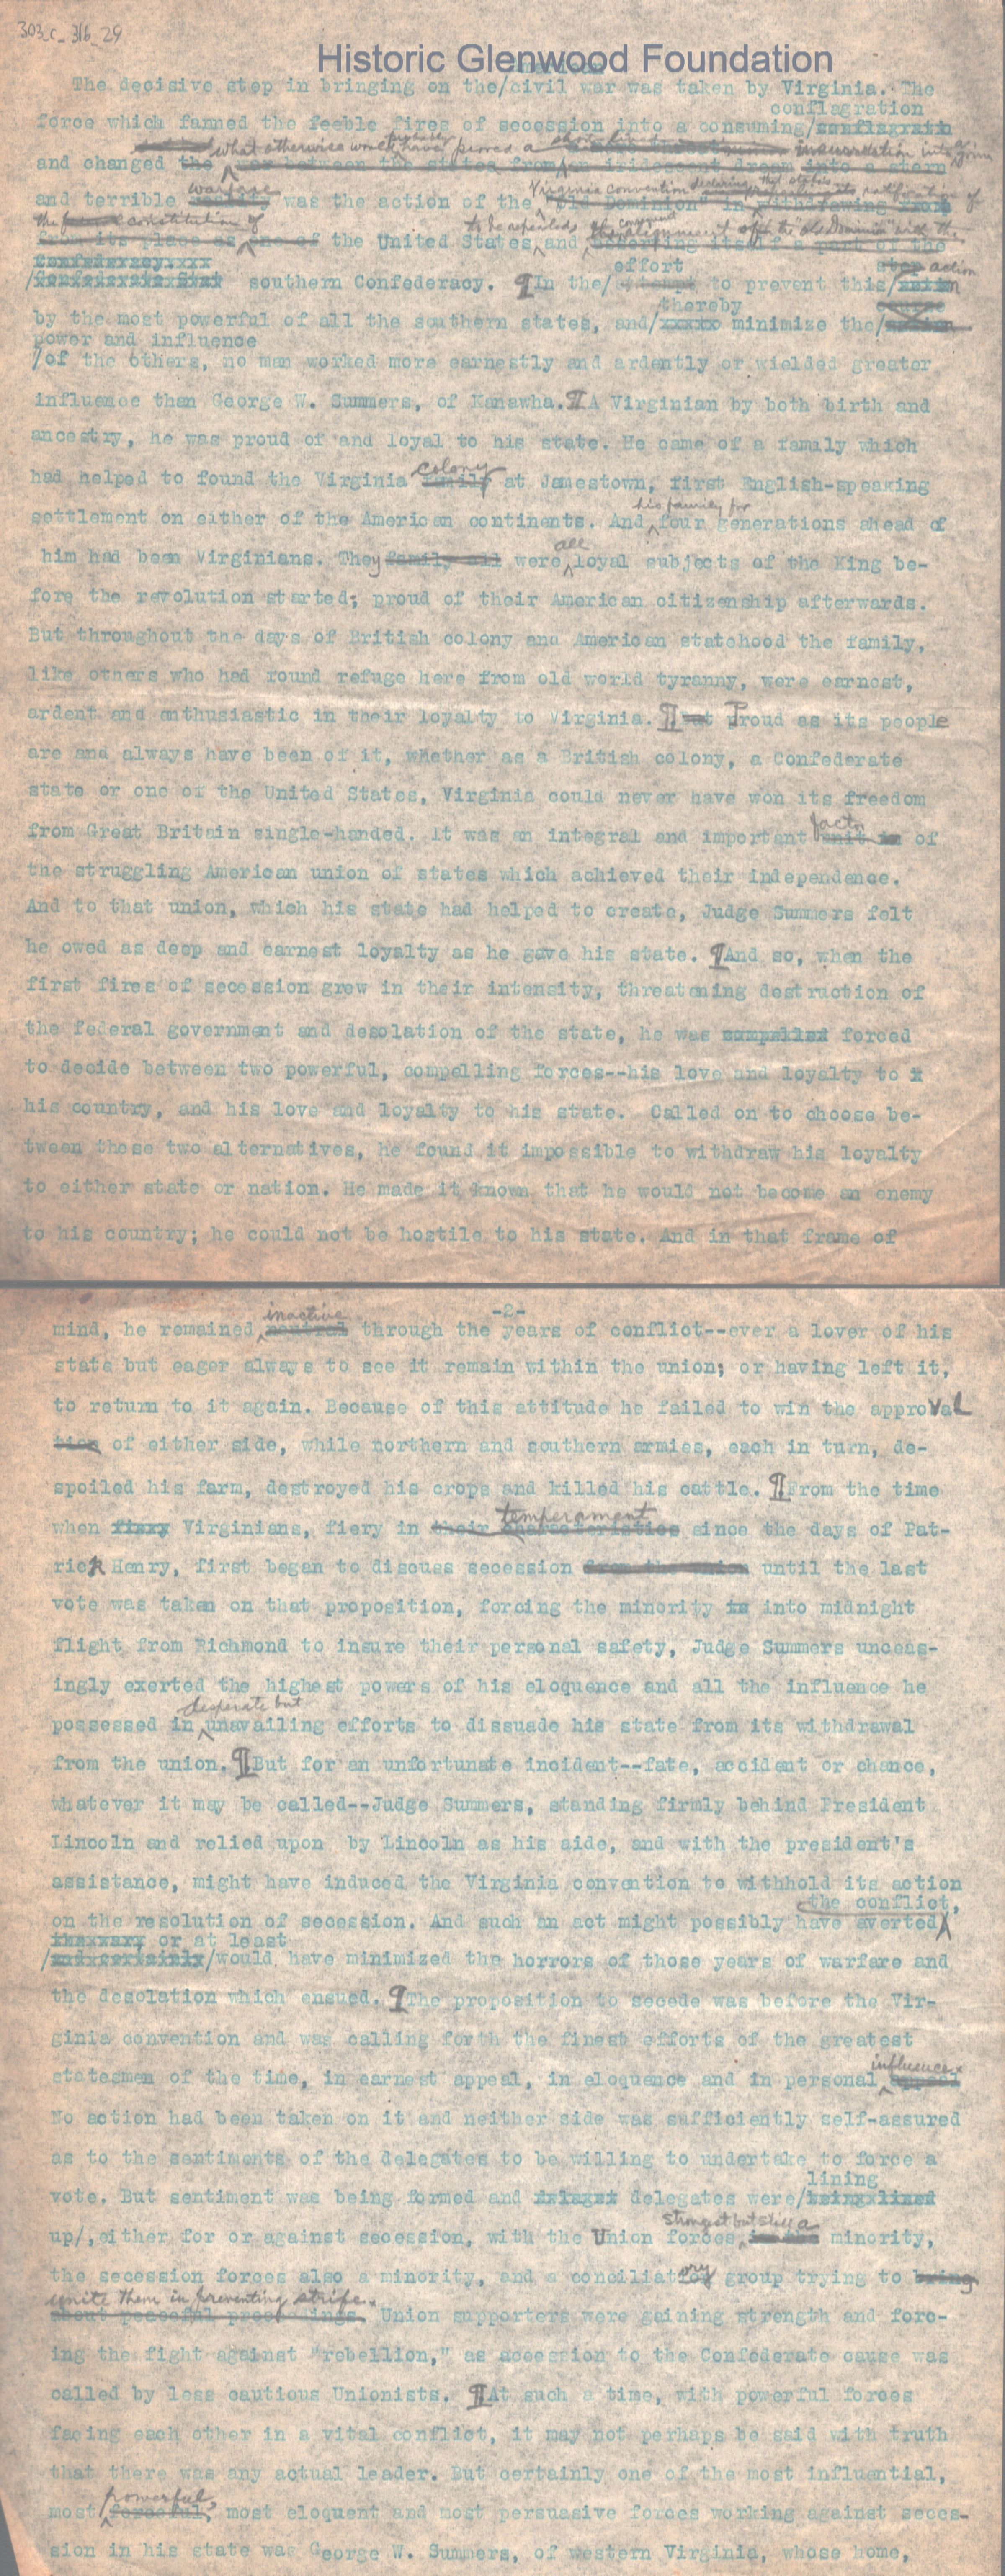 303_c_316_29
Historic Glenwood Foundation
The decisive step in bringing on the/civil war was taken by Virginia. The
conflagration
force which fanned the feeble fires of secession into a consuming/
what otherwise would have proved a insurrection into
and changed the war between the states from an iridescent dream into a stern
warfare Virginia convention declaring ratification of
and terrible reality was the action of the "Old Dominion" in withdrawing
the constitution of to be repealed
from its place as one of the United States, and
effort action
southern Confederacy. ¶In the/ to prevent this/
thereby
by the most powerful of all the southern states, and/ minimize the/
power and influence
/of the others, no man worked more earnestly and ardently or wielded greater
influence than George W. Summers, of Kanawha. ¶A Virginian by both birth and
ancestry, he was proud of and loyal to his state. He came of a family which
colony
had helped to found the Virginia family at Jamestown, first English-speaking
his family for
settlement on either of the American continents. And four generations ahead of
all
him had been Virginians. They family all were loyal subjects of the King be-
fore the revolution started; proud of their American citizenship afterwards.
But throughout the days of British colony and American statehood the family,
like others who had found refuge here from old world tyranny, were earnest,
ardent and enthusiastic in their loyalty to Virginia. ¶ Proud as its people
are and always have been of it, whether as a British colony, a Confederate
state or one of the United States, Virginia could never have won its freedom
factor
from Great Britain single-handed. It was an integral and important unit in of
the struggling American union of states which achieved their independence.
And to that union, which his state had helped to create, Judge Summers felt
he owed as deep and earnest loyalty as he gave his state. ¶And so, when the
first fires of secession grew in their intensity, threatening destruction of
the federal government and desolation of the state, he was compelled forced
to decide between two powerful, compelling forces--his love and loyalty to x
his country, and his love and loyalty to his state. Called on to choose be-
tween these two alternatives, he found it impossible to withdraw his loyalty
to either state or nation. He made it known that he would not become an enemy
to his country; he could not be hostile to his state. And in that frame of
-2-
inactive
mind, he remained neutral through the years of conflict--ever a lover of his
state but eager always to see it remain within the union; or having left it,
to return to it again. Because of this attitude he failed to win the approval
tion of either side, while northern and southern armies, each in turn, de-
spoiled his farm, destroyed his crops and killed his cattle. ¶From the time
temperament
when fixxy Virginians, fiery in their characteristics since the days of Pat-
rick Henry, first began to discuss secession from the union until the last
vote was taken on that proposition, forcing the minority in into midnight
flight from Richmond to insure their personal safety, Judge Summers unceas-
ingly exerted the highest powers of his eloquence and all the influence he
desperate but
possessed in unavailing efforts to dissuade his state from its withdrawal
from the union. ¶But for an unfortunate incident--fate, accident or chance,
whatever it may be called--Judge Summers, standing firmly behind President
Lincoln and relied upon by Lincoln as his aide, and with the president's
assistance, might have induced the Virginia convention to withhold its action
the conflict,
on the resolution of secession. And such an act might possibly have averted
or at least
/and certainly/would have minimized the horrors of those years of warfare and
the desolation which ensued. ¶The proposition to secede was before the Vir-
ginia convention and was calling forth the finest efforts of the greatest
influence.
statesmen of the time, in earnest appeal, in eloquence and in personal appeal
No action had been taken on it and neither side was sufficiently self-assured
as to the sentiments of the delegates to be willing to undertake to force a
lining
vote. But sentiment was being formed and delegates were/being lined
strongest but still a
up/,either for or against secession, with the Union forces, in the minority,
the secession forces also a minority, and a conciliatory group trying to bring
unite them in preventing strife.
about peaceful proceedings. Union supporters were gaining strength and forc-
ing the fight against "rebellion," as accession to the Confederate cause was
called by less cautious Unionists. ¶At such a time, with powerful forces
facing each other in a vital conflict, it may not perhaps be said with truth
that there was any actual leader. But certainly one of the most influential,
powerful,
most forceful, most eloquent and most persuasive forces working against seces-
sion in his state was George W. Summers, of western Virginia, whose home,